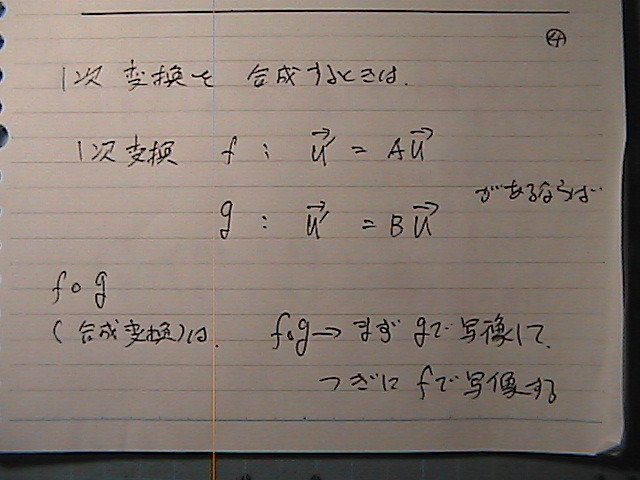 ④
1次変換を 合成するときは.
1次変換 f : u⃗' = Au⃗
があるならば
g : u⃗' = Bu⃗
f∘g
(合成変換)は. f∘g→ まず gで写像して.
つぎに fで写像する